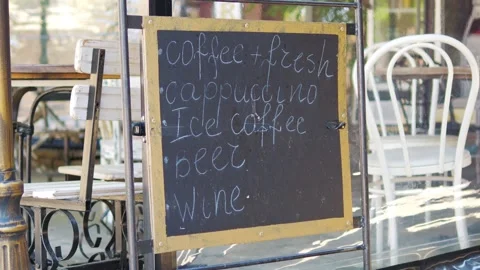 • coffee + fresh
• cappuccino
• Ice coffee
• beer
• wine